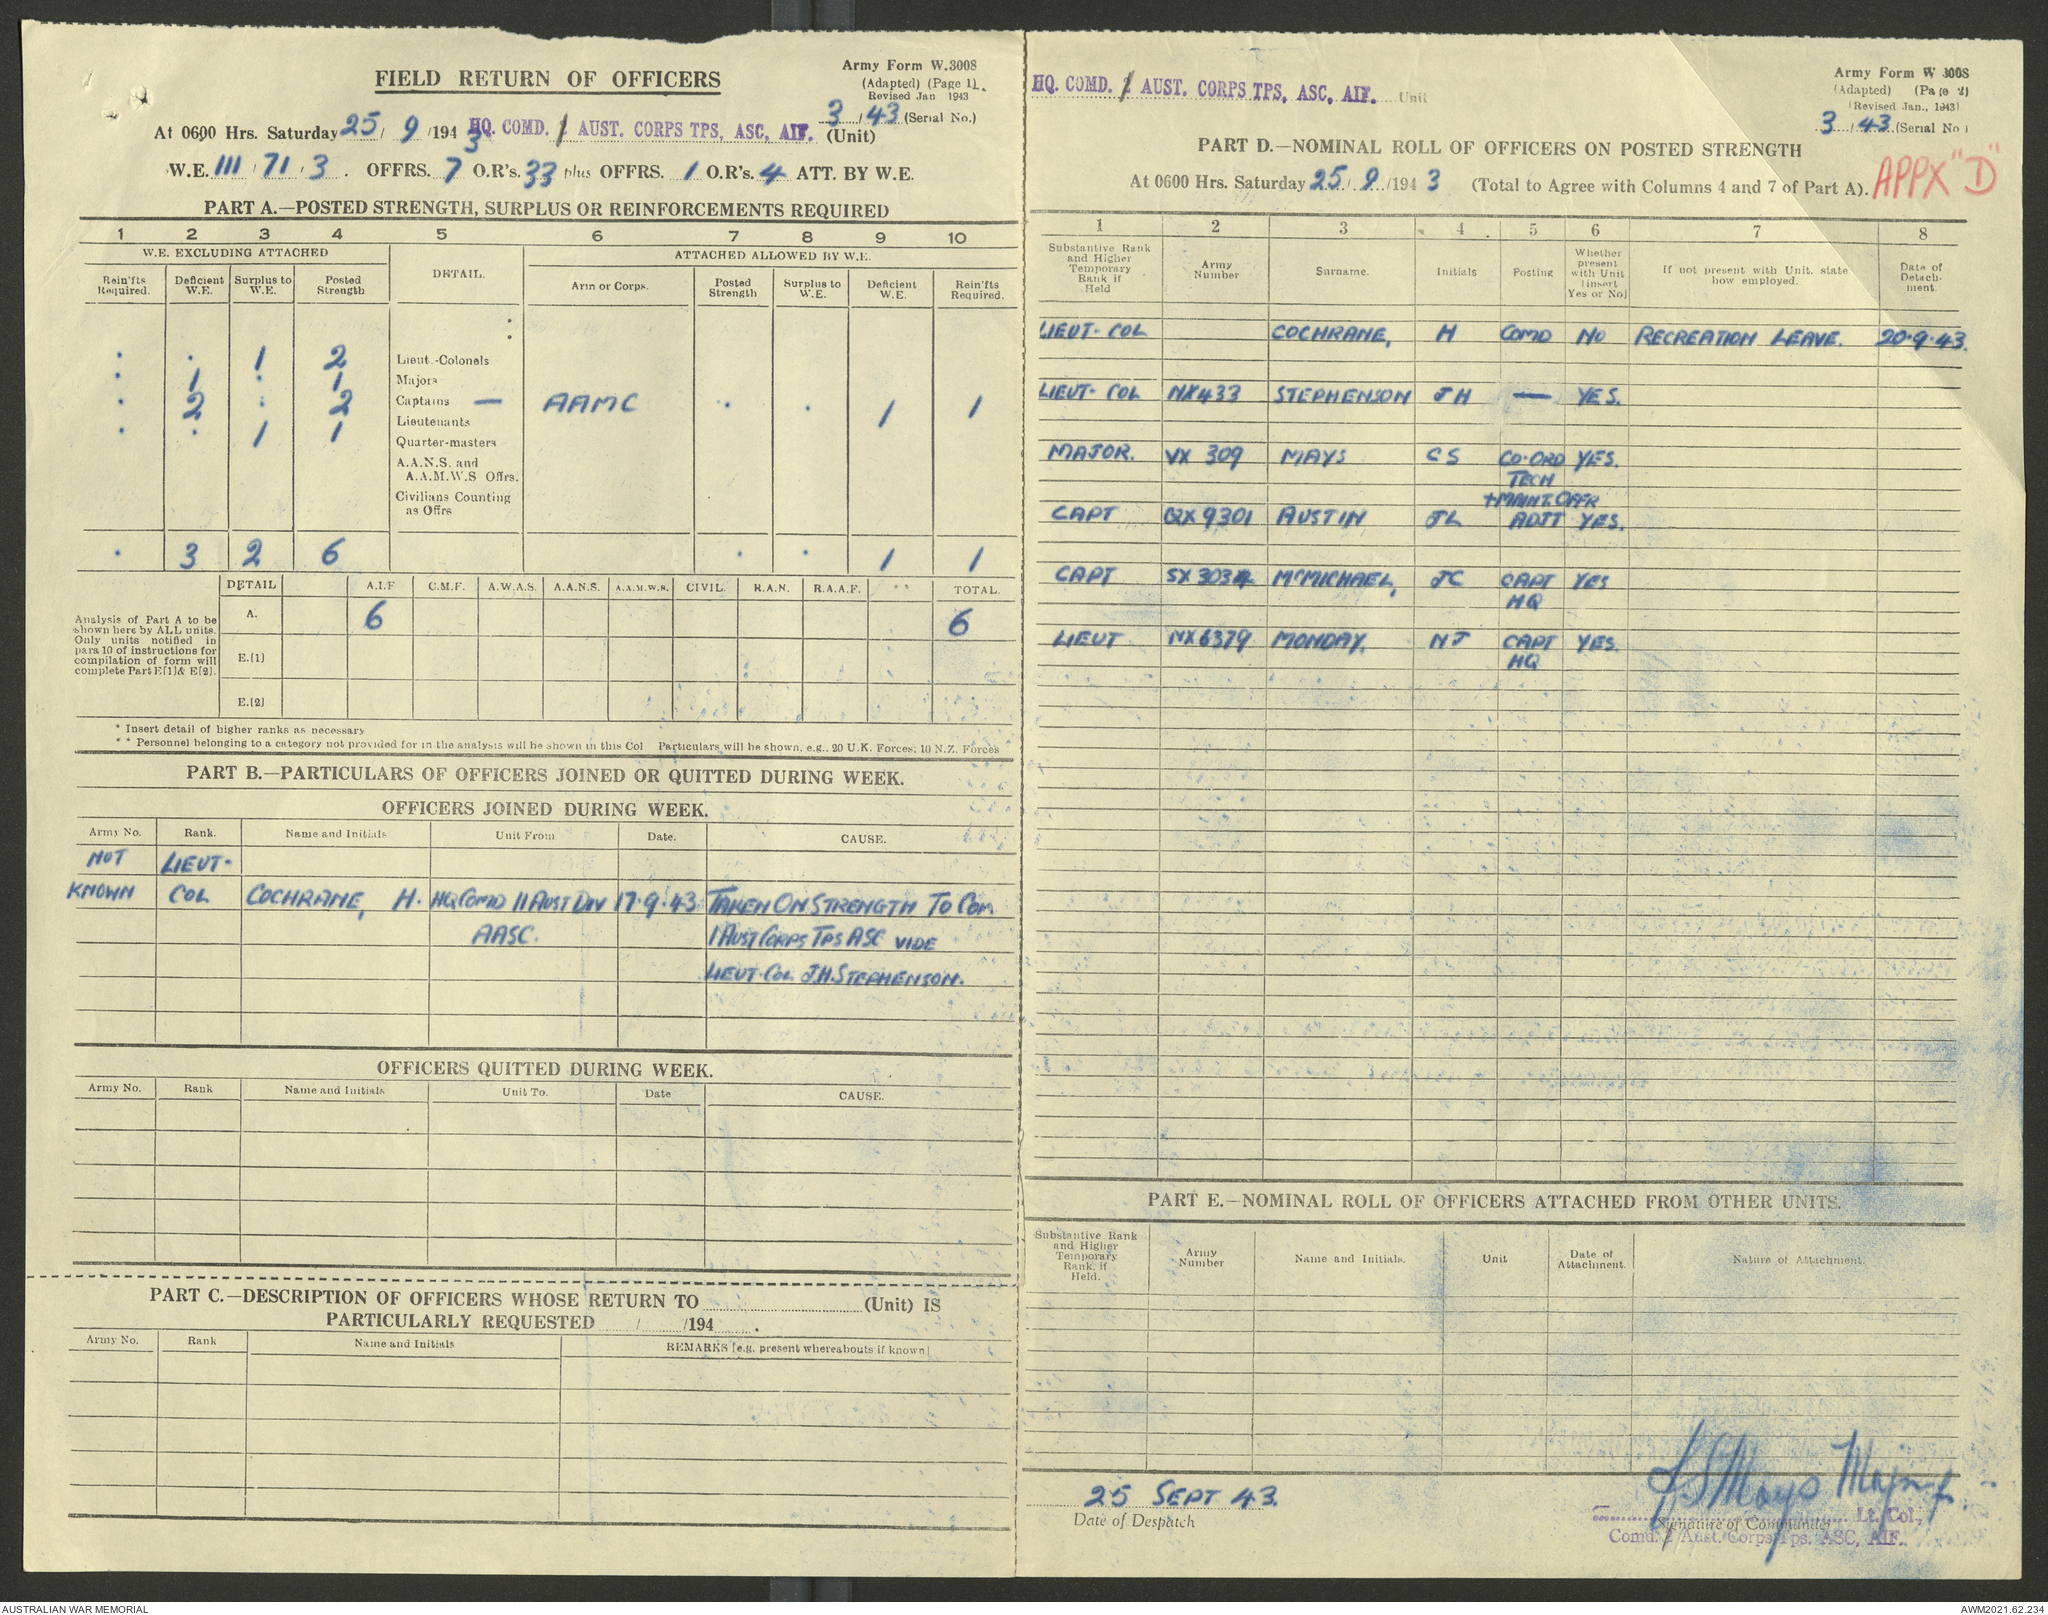 FIELD RETURN OF OFFICERS
Army Form W.3008
(Adapted) (Page 1).
Revised Jan 1943
3/43 (Serial No.)
At 0600 Hrs. Saturday 25/9/1943 HQ. COMD. 1 AUST. CORPS TPS, ASC, AIF. (Unit)
W.E. III/71/3. OFFRS. 7 O.R's. 33 plus OFFRS. 1 O.R's. 4 ATT. BY W.E.
PART A.—POSTED STRENGTH, SURPLUS OR REINFORCEMENTS REQUIRED
1 2 3 4 5 6 7 8 9 10
W.E. EXCLUDING ATTACHED DETAIL. ATTACHED ALLOWED BY W.E.
Rein'fts Required. Deficient W.E. Surplus to W.E. Posted Strength Arm or Corps. Posted Strength Surplus to W.E. Deficient W.E. Rein'fts Required.
. . 1 2 Lieut.-Colonels
. 1 . 1 Majors
. 2 . 2 Captains — AAMC . . 1 1
. . 1 1 Lieutenants
Quarter-masters
A.A.N.S. and
A.A.M.W.S Offrs.
Civilians Counting
as Offrs
. 3 2 6 . . 1 1
DETAIL A.I.F C.M.F. A.W.A.S. A.A.N.S. A.A.M.W.S. CIVIL. R.A.N. R.A.A.F. ** TOTAL.
Analysis of Part A to be
shown here by ALL units.
Only units notified in
para 10 of instructions for
compilation of form will
complete Part E[1]& E[2].
A. 6 6
E.[1]
E.[2]
* Insert detail of higher ranks as necessary
* * Personnel belonging to a category not provided for in the analysis will be shown in this Col Particulars will be shown, e.g., 20 U.K. Forces; 10 N.Z. Forces
PART B.—PARTICULARS OF OFFICERS JOINED OR QUITTED DURING WEEK.
OFFICERS JOINED DURING WEEK.
Army No. Rank. Name and Initials Unit From Date. CAUSE.
NOT LIEUT-
KNOWN COL COCHRANE, H. HQ COMD 11 AUST DIV 17.9.43 TAKEN ON STRENGTH TO COM
AASC. 1 AUST CORPS TPS ASC VIDE
LIEUT. COL J.H. STEPHENSON.
OFFICERS QUITTED DURING WEEK.
Army No. Rank Name and Initials Unit To. Date CAUSE.
PART C.—DESCRIPTION OF OFFICERS WHOSE RETURN TO (Unit) IS
PARTICULARLY REQUESTED / /194 .
Army No. Rank Name and Initials REMARKS [e.g. present whereabouts if known]
HQ. COMD. 1 AUST. CORPS TPS, ASC, AIF. Unit
Army Form W 3008
(Adapted) (Page 2)
(Revised Jan., 1943)
3/43 (Serial No)
PART D.—NOMINAL ROLL OF OFFICERS ON POSTED STRENGTH
At 0600 Hrs. Saturday 25/9/1943 (Total to Agree with Columns 4 and 7 of Part A). APPX "D"
1 2 3 4 5 6 7 8
Substantive Rank and Higher Temporary Rank if Held Army Number Surname. Initials Posting Whether present with Unit [insert Yes or No] If not present with Unit, state how employed. Date of Detachment.
LIEUT-COL COCHRANE, H COMD NO RECREATION LEAVE. 20.9.43.
LIEUT-COL NX433 STEPHENSON JH — YES.
MAJOR. VX 309 MAYS CS CO-ORD YES.
TECH
+ MAINT. OFFR
CAPT QX9301 AUSTIN JL ADJT YES.
CAPT SX3034 McMICHAEL, JC CAPT YES
HQ
LIEUT NX6379 MONDAY. NJ CAPT YES.
HQ
PART E.—NOMINAL ROLL OF OFFICERS ATTACHED FROM OTHER UNITS.
Substantive Rank and Higher Temporary Rank, if Held. Army Number Name and Initials. Unit Date of Attachment. Nature of Attachment.
25 SEPT 43.
Date of Despatch
CS Mays Major
Lt. Col.,
Signature of Commander
Comd. 1 Aust. Corps Tps. ASC, AIF.
AUSTRALIAN WAR MEMORIAL
AWM2021.62.234